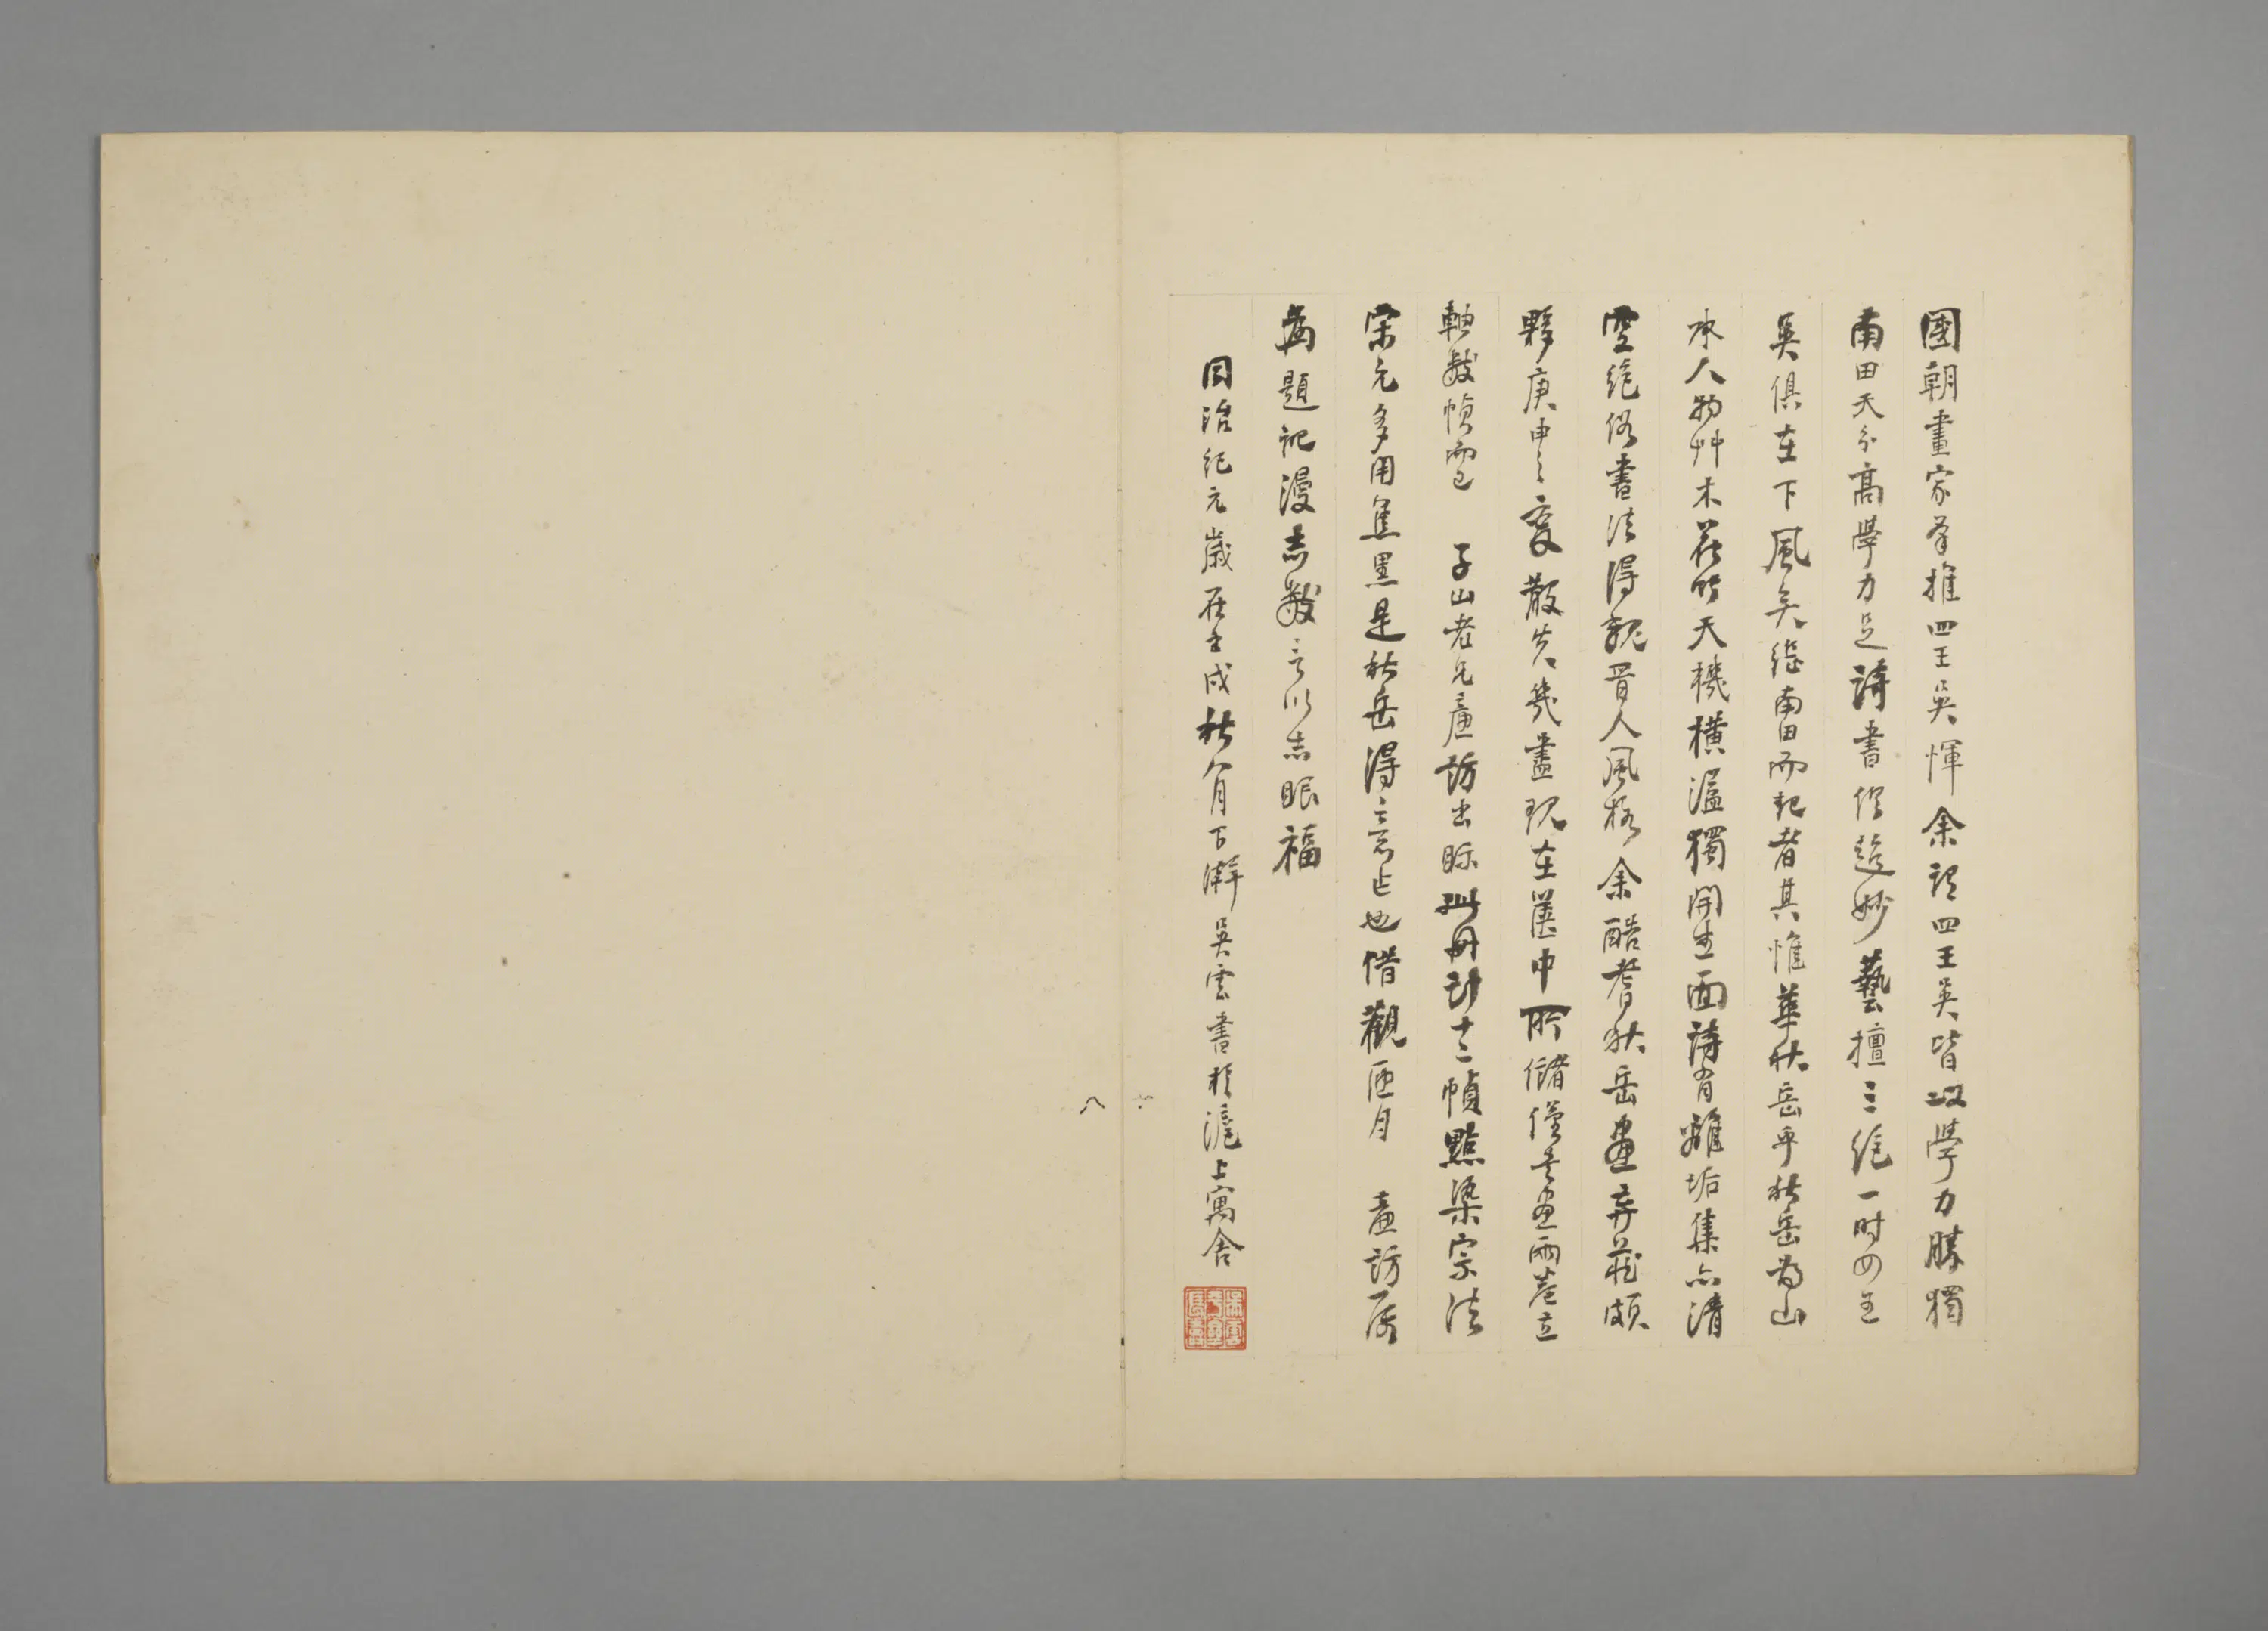 國朝畫家羣推四王吳惲余謂四王吳皆以學力勝獨
南田天分高學力足詩書俱造妙藝擅三絕一時四王
吳俱在下風矣繼南田而起者其惟華秋岳乎秋岳為山
水人物艸木花鳥天機橫溢獨開生面詩有離垢集亦清
空絕俗書法得魏晉人風格余酷耆秋岳畫弆藏頗
夥庚申之變散失幾盡現在篋中所儲僅其畫兩卷立
軸數幀而已 子山老兄廉訪出眎此冊計十二幀點染宗法
宋元多用焦墨是秋岳得意作也借觀匝月 廉訪屬
為題記漫書數言以志眼福
同治紀元歲在壬戌秋八月下澣吳雲書於滬上寓舍
八